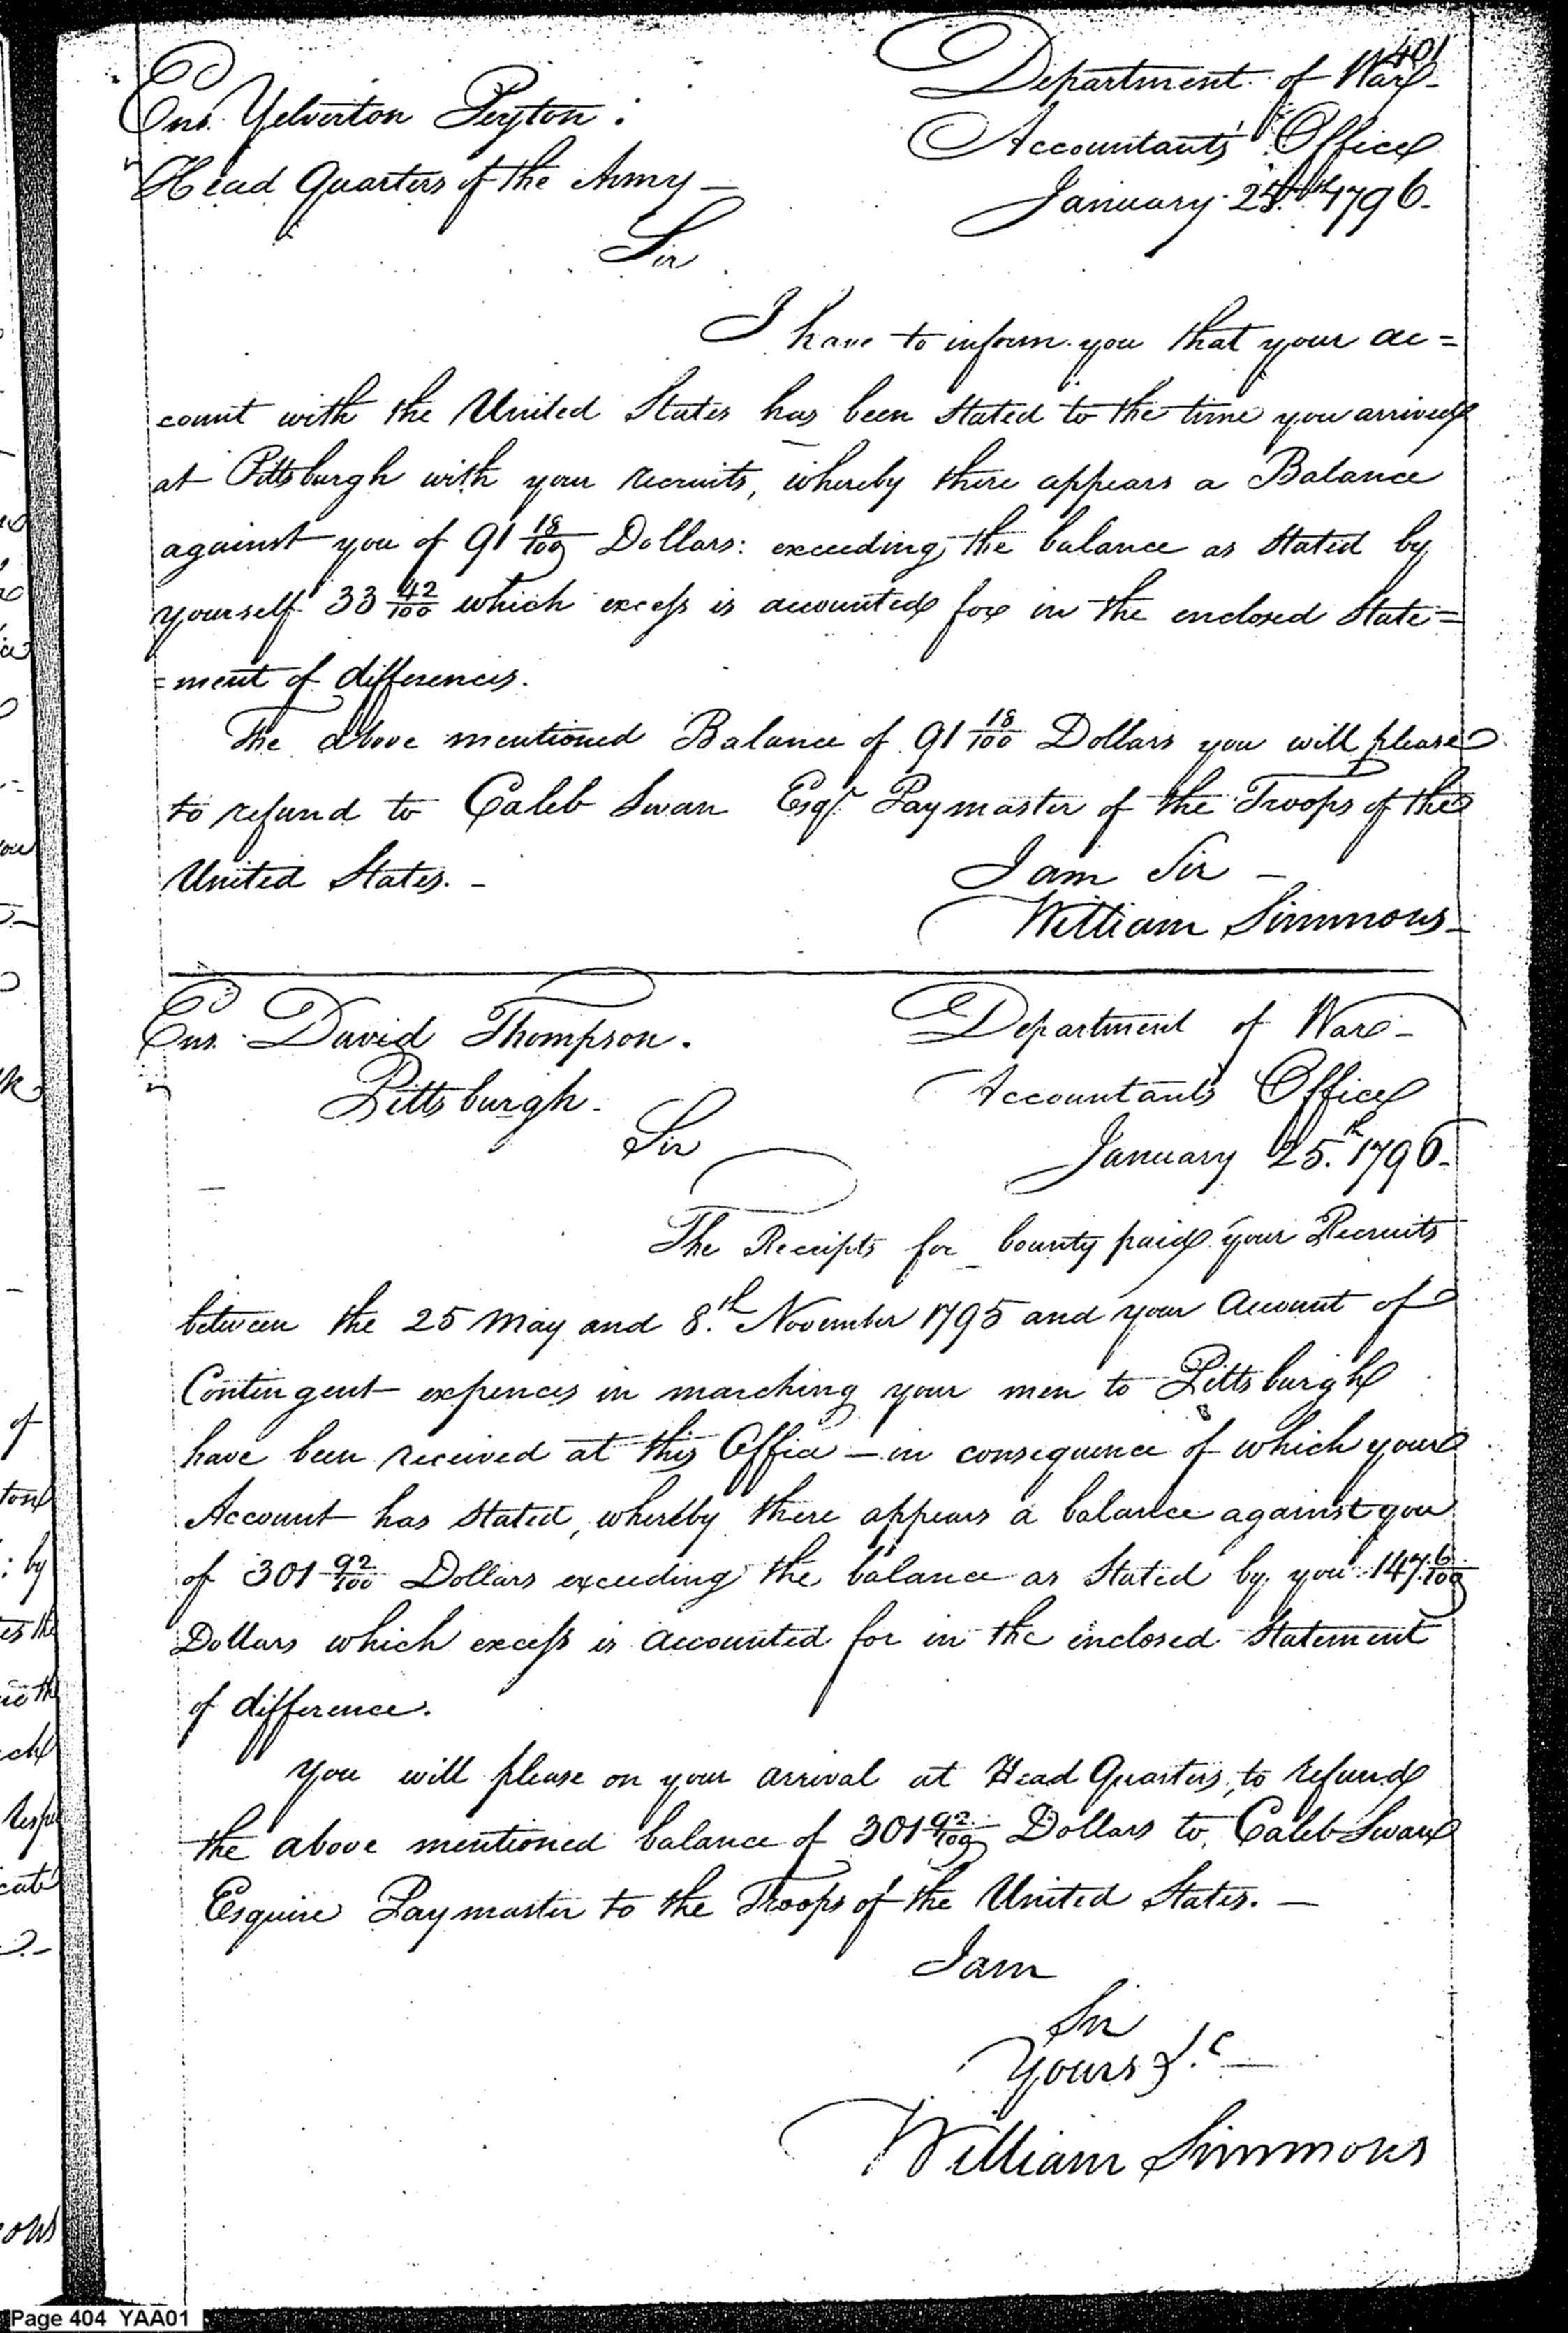 401
Ens. Yelverton Peyton.
Head Quarters of the Army —
Department of War —
Accountants' Office
January 25th 1796.
Sir
I have to inform you that your ac=
count with the United States has been stated to the time you arrived
at Pittsburgh with your recruits, whereby there appears a Balance
against you of 91 18/100 Dollars: exceeding the balance as stated by
yourself 33 42/100 which excess is accounted for in the enclosed State=
=ment of differences.
The above mentioned Balance of 91 18/100 Dollars you will please
to refund to Caleb Swan Esqr. Paymaster of the Troops of the
United States. —
I am Sir —
William Simmons
Ens. David Thompson.
Pittsburgh.
Department of War —
Accountants Office
January 25.th 1796.
Sir
The Receipts for bounty paid your Recruits
between the 25 May and 8.th November 1795 and your Account of
Contingent expences in marching your men to Pittsburgh
have been received at this Office — in consequence of which your
Account has stated, whereby there appears a balance against you
of 301 92/100 Dollars exceeding the balance as stated by you 147. 6/100
Dollars which excess is accounted for in the enclosed Statement
of difference.
You will please on your arrival at Head Quarters, to refund
the above mentioned balance of 301 92/100 Dollars to Caleb Swan
Esquire Paymaster to the Troops of the United States. —
I am
Sir
Yours &.c —
William Simmons
Page 404 YAA01